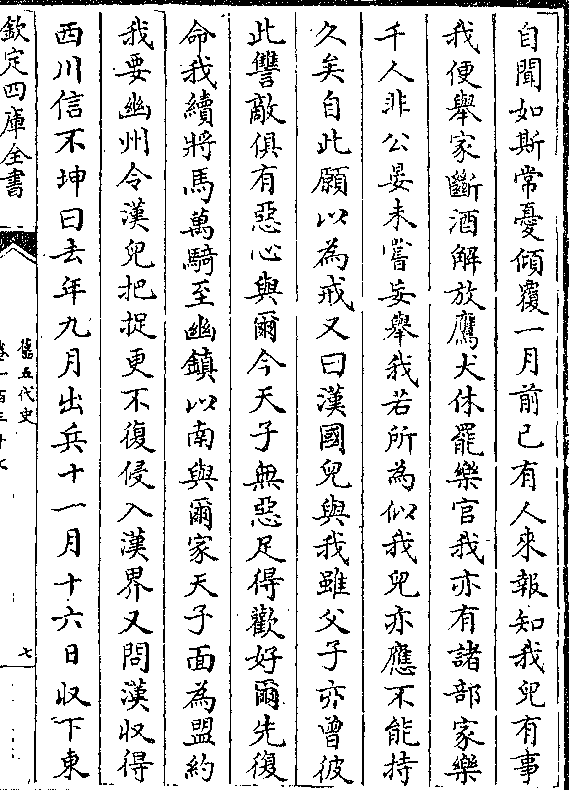 自聞如斯常憂傾覆一月前已有人來報知我兒有事
我便舉家斷酒解放鷹犬休罷樂官我亦有諸部家樂
千人非公宴未嘗妄舉我若所為似我兒亦應不能持
久矣自此願以為戒又曰漢國兒與我雖父子亦曾彼
此讐敵俱有惡心與爾今天子無惡足得歡好爾先復
命我續將馬萬騎至幽鎮以南與爾家天子面為盟約
我要幽州令漢兒把捉更不復侵入漢界又問漢收得
西川信不坤曰去年九月出兵十一月十六日收下東
欽定四庫全書
舊五代史
卷一百三十七
七